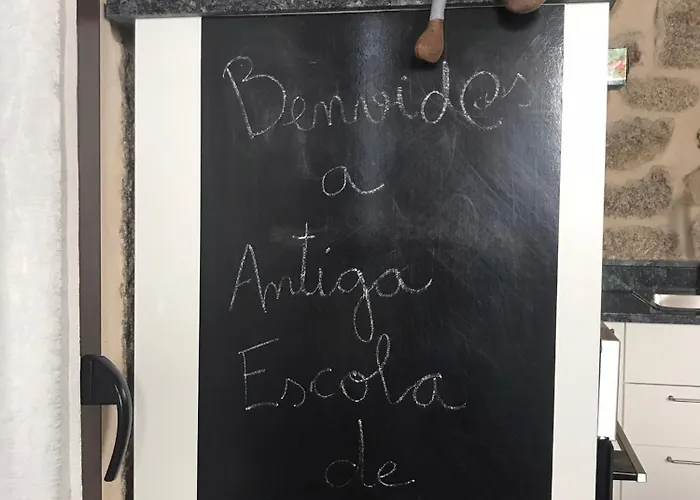 Benvid@s
a
Antiga
Escola
de